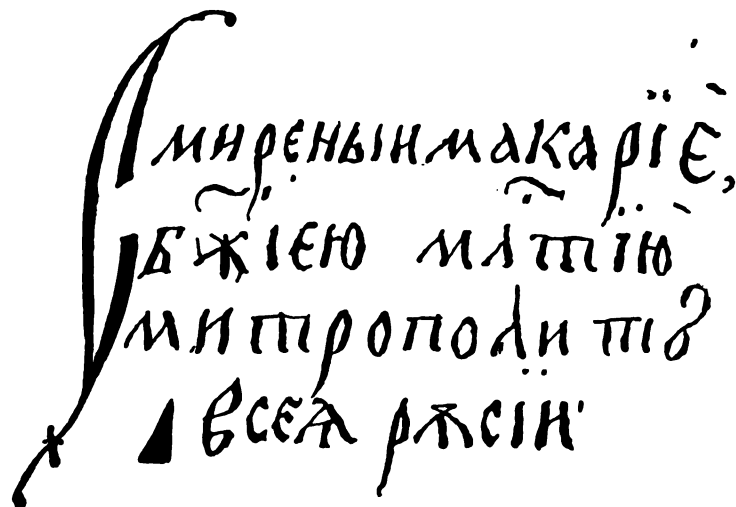 Смиреныи макарїе,
бж҃їею мл҃тїю
митрополитъ
всеѧ рѫсїи